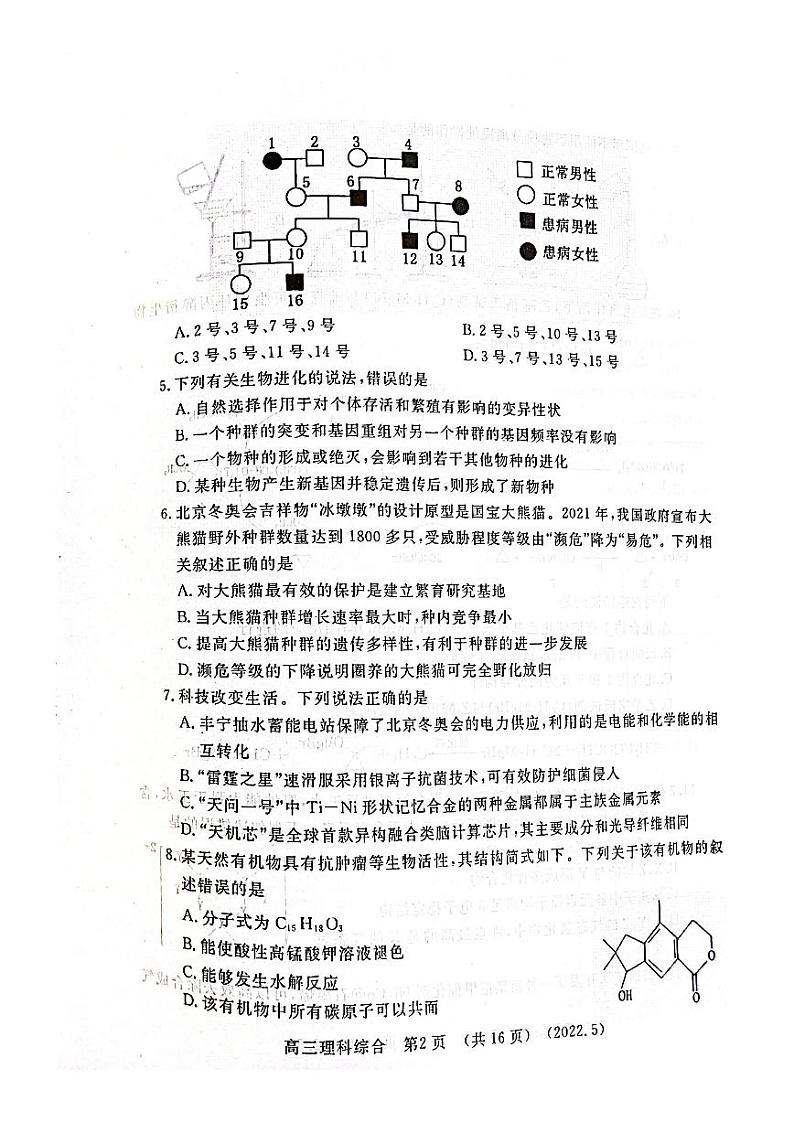 1 2 3 4
□ 正常男性
5 6 7 8
○ 正常女性
■ 患病男性
9 10 11 12 13 14
● 患病女性
15 16
A. 2号、3号、7号、9号 B. 2号、5号、10号、13号
C. 3号、5号、11号、14号 D. 3号、7号、13号、15号
5. 下列有关生物进化的说法,错误的是
A. 自然选择作用于对个体存活和繁殖有影响的变异性状
B. 一个种群的突变和基因重组对另一个种群的基因频率没有影响
C. 一个物种的形成或绝灭,会影响到若干其他物种的进化
D. 某种生物产生新基因并稳定遗传后,则形成了新物种
6. 北京冬奥会吉祥物“冰墩墩”的设计原型是国宝大熊猫。2021年,我国政府宣布大
熊猫野外种群数量达到1800多只,受威胁程度等级由“濒危”降为“易危”。下列相
关叙述正确的是
A. 对大熊猫最有效的保护是建立繁育研究基地
B. 当大熊猫种群增长速率最大时,种内竞争最小
C. 提高大熊猫种群的遗传多样性,有利于种群的进一步发展
D. 濒危等级的下降说明圈养的大熊猫可完全野化放归
7. 科技改变生活。下列说法正确的是
A. 丰宁抽水蓄能电站保障了北京冬奥会的电力供应,利用的是电能和化学能的相
互转化
B. “雷霆之星”速滑服采用银离子抗菌技术,可有效防护细菌侵入
C. “天问一号”中Ti—Ni形状记忆合金的两种金属都属于主族金属元素
D. “天机芯”是全球首款异构融合类脑计算芯片,其主要成分和光导纤维相同
8. 某天然有机物具有抗肿瘤等生物活性,其结构简式如下。下列关于该有机物的叙
述错误的是
A. 分子式为C₁₅H₁₈O₃
B. 能使酸性高锰酸钾溶液褪色
C. 能够发生水解反应
D. 该有机物中所有碳原子可以共面
O
OH O
高三理科综合 第2页 (共16页) (2022.5)